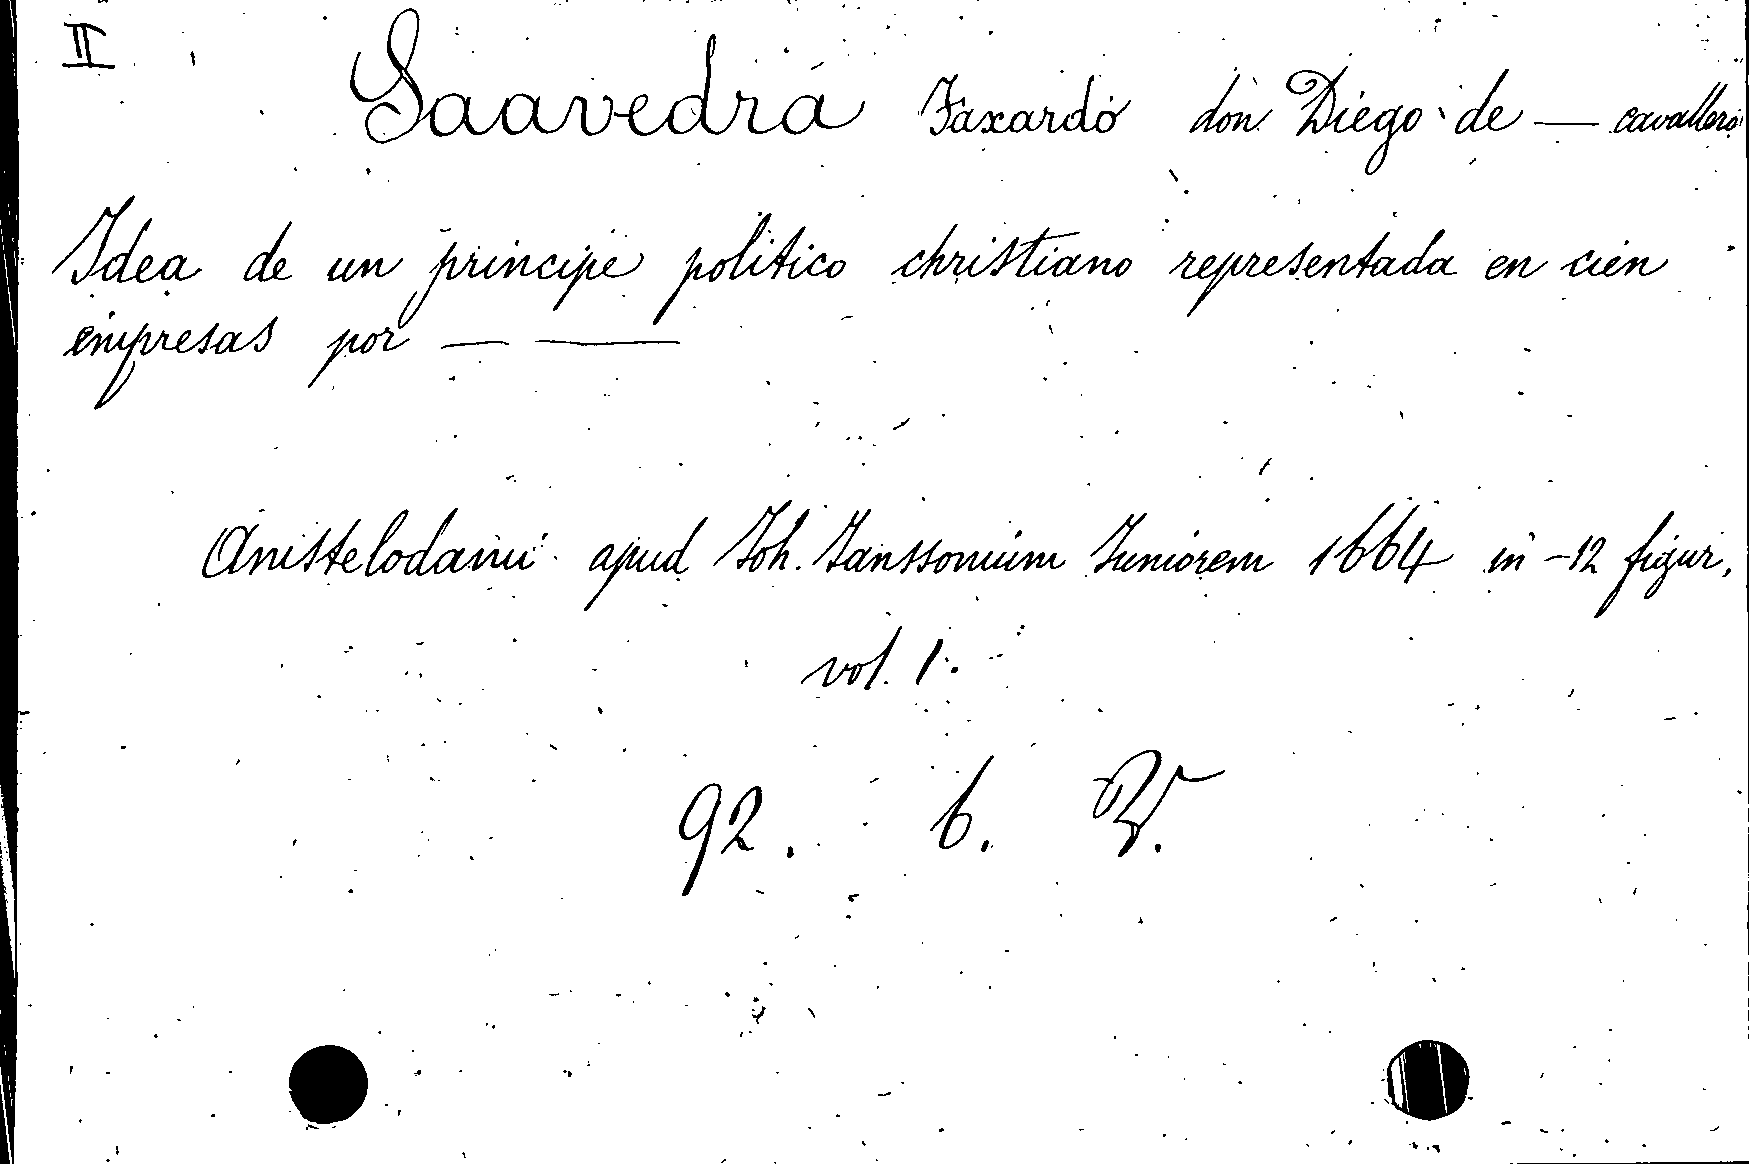 II
Saavedra Faxardo don Diego de — cavallero
Idea de un principe politico christiano representada en cien
empresas por — —
Amstelodami apud Joh. Janssonium Juniorem 1664 in-12 figur.
vol. 1.
92. 6.